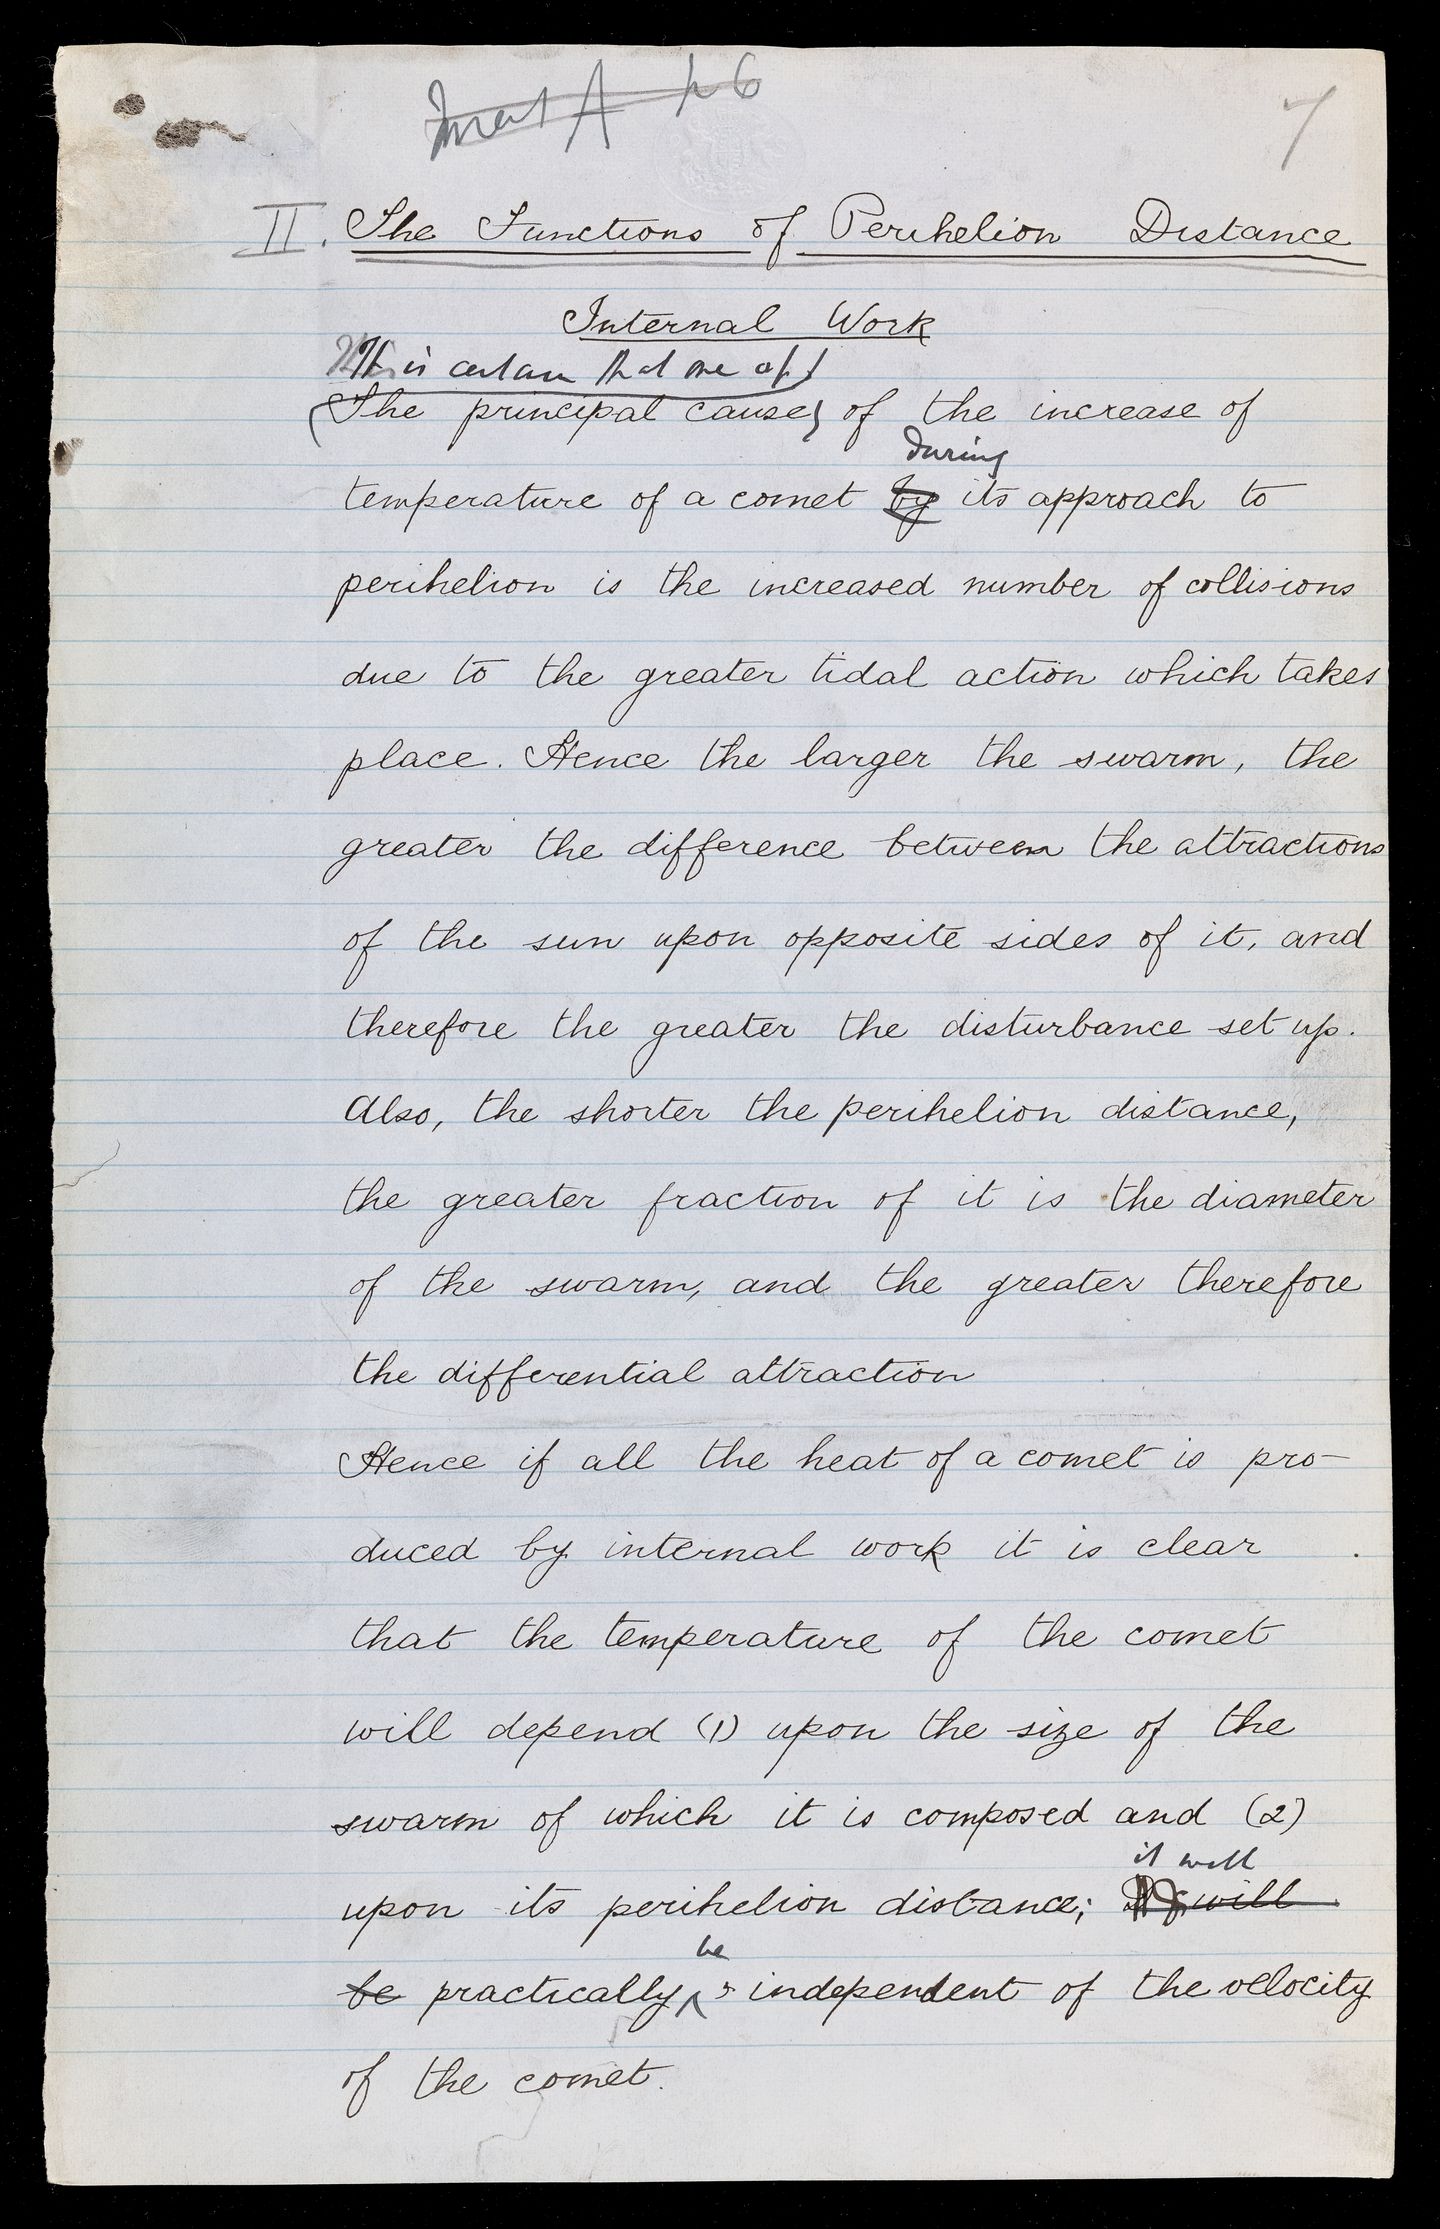 Insert A p 6
7
II. The Functions of Perihelion Distance
Internal Work
It is certain that one of
(The principal cause) of the increase of
during
temperature of a comet by its approach to
perihelion is the increased number of collisions
due to the greater tidal action which takes
place. Hence the larger the swarm, the
greater the difference between the attractions
of the sun upon opposite sides of it, and
therefore the greater the disturbance set up.
Also, the shorter the perihelion distance,
the greater fraction of it is the diameter
of the swarm, and the greater therefore
the differential attraction
Hence if all the heat of a comet is pro-
duced by internal work it is clear
that the temperature of the comet
will depend (1) upon the size of the
swarm of which it is composed and (2)
it will
upon its perihelion distance; will
be
be practically independent of the velocity
of the comet.